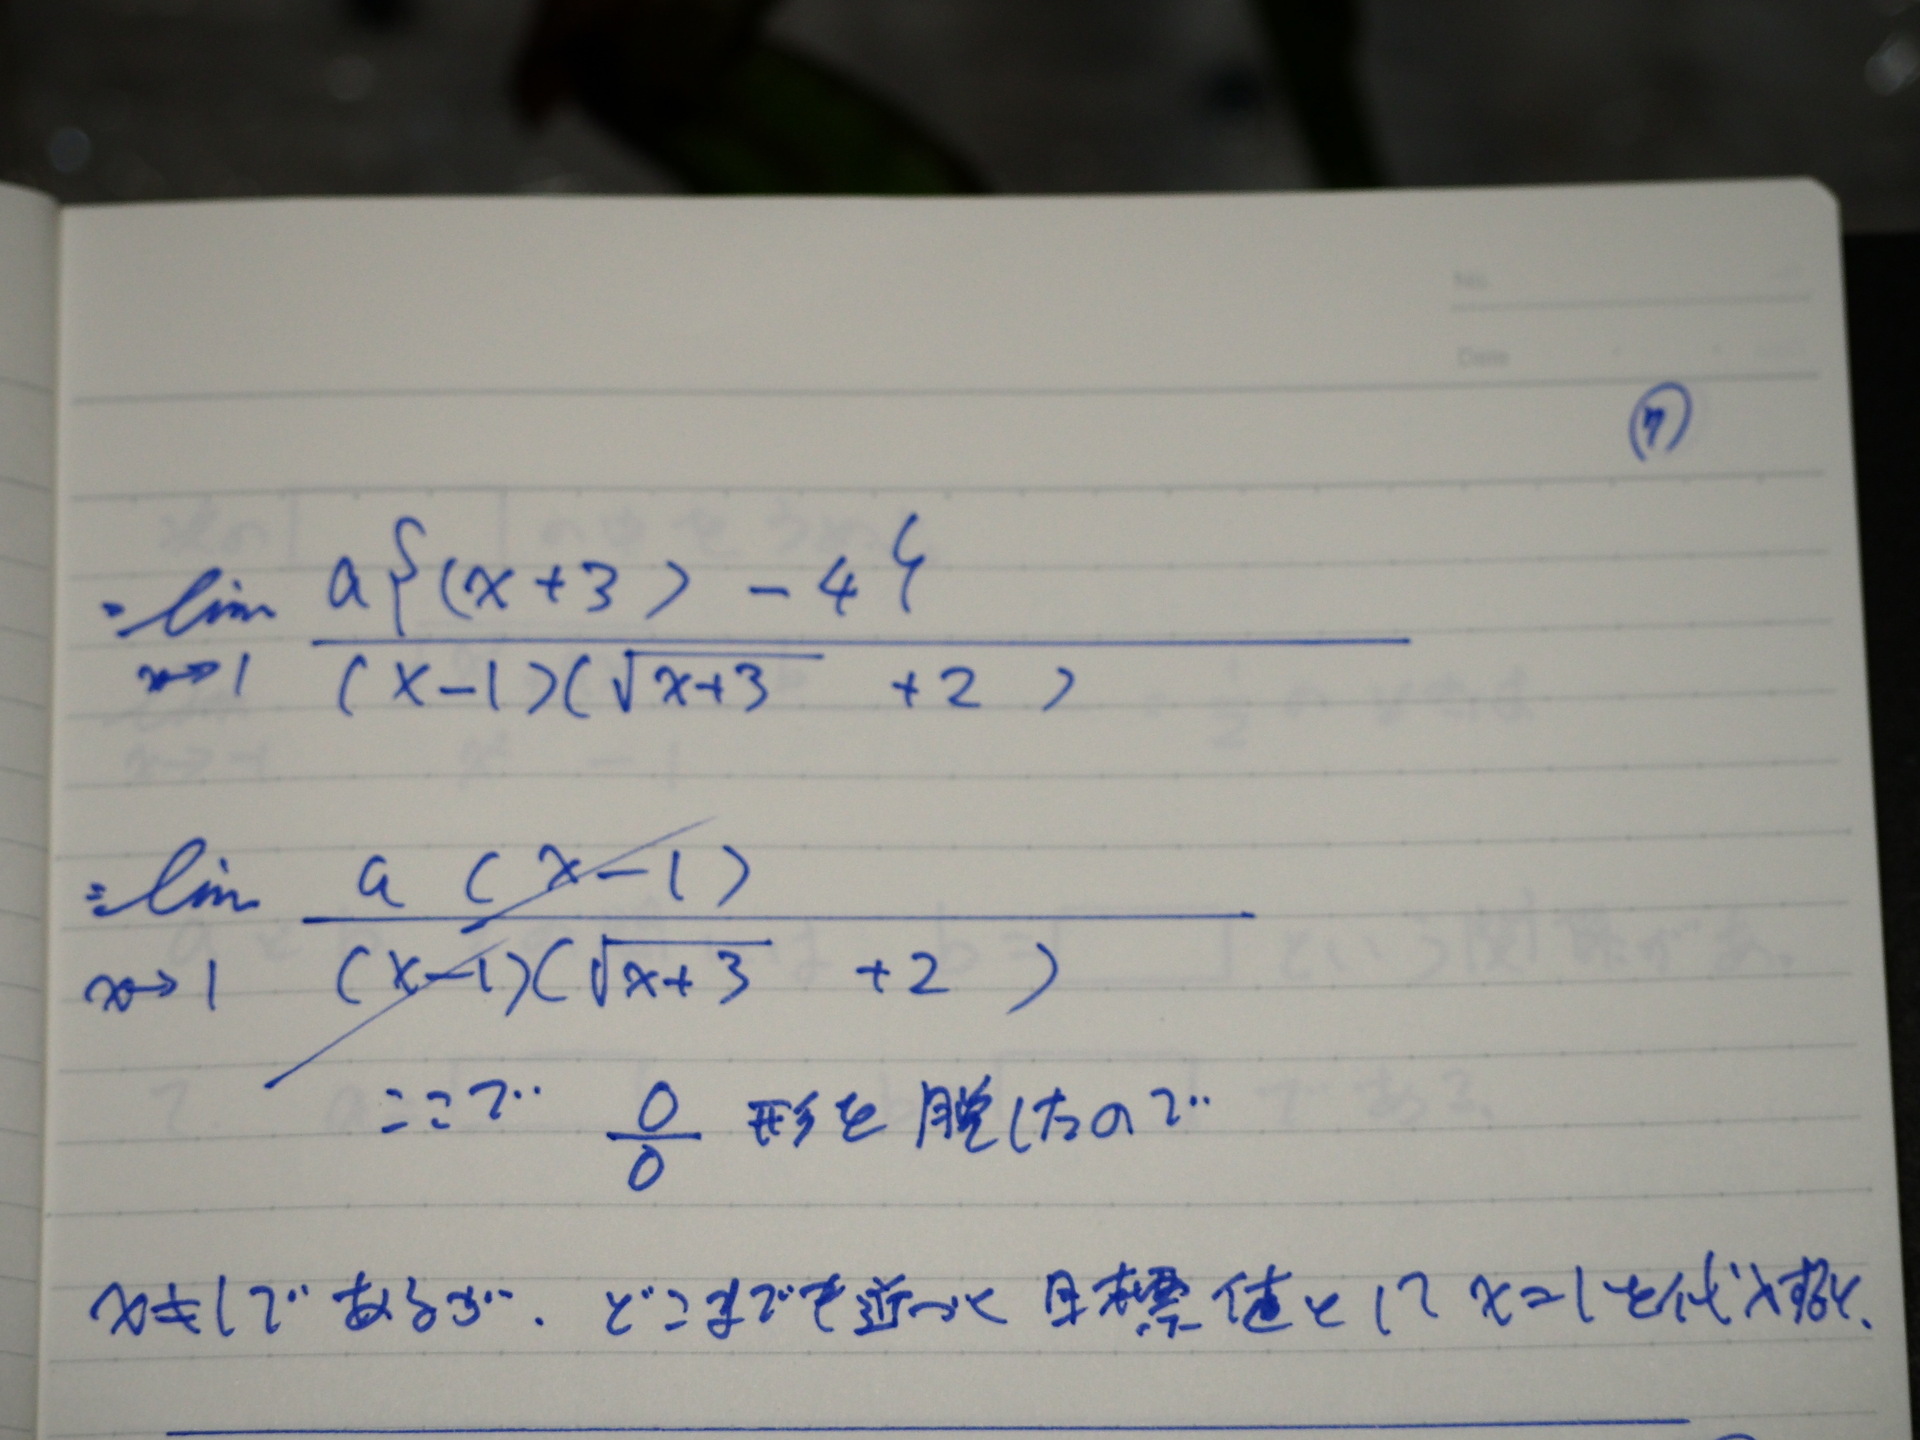 No.
Date
⑦
= lim a{(x+3) - 4}
x→1 (x-1)(√x+3 +2)
= lim a (x-1)
x→1 (x-1)(√x+3 +2)
ここで 0/0 形を脱したので
x≠1であるが、どこまでも近づく目標値として x=1を代入すると、